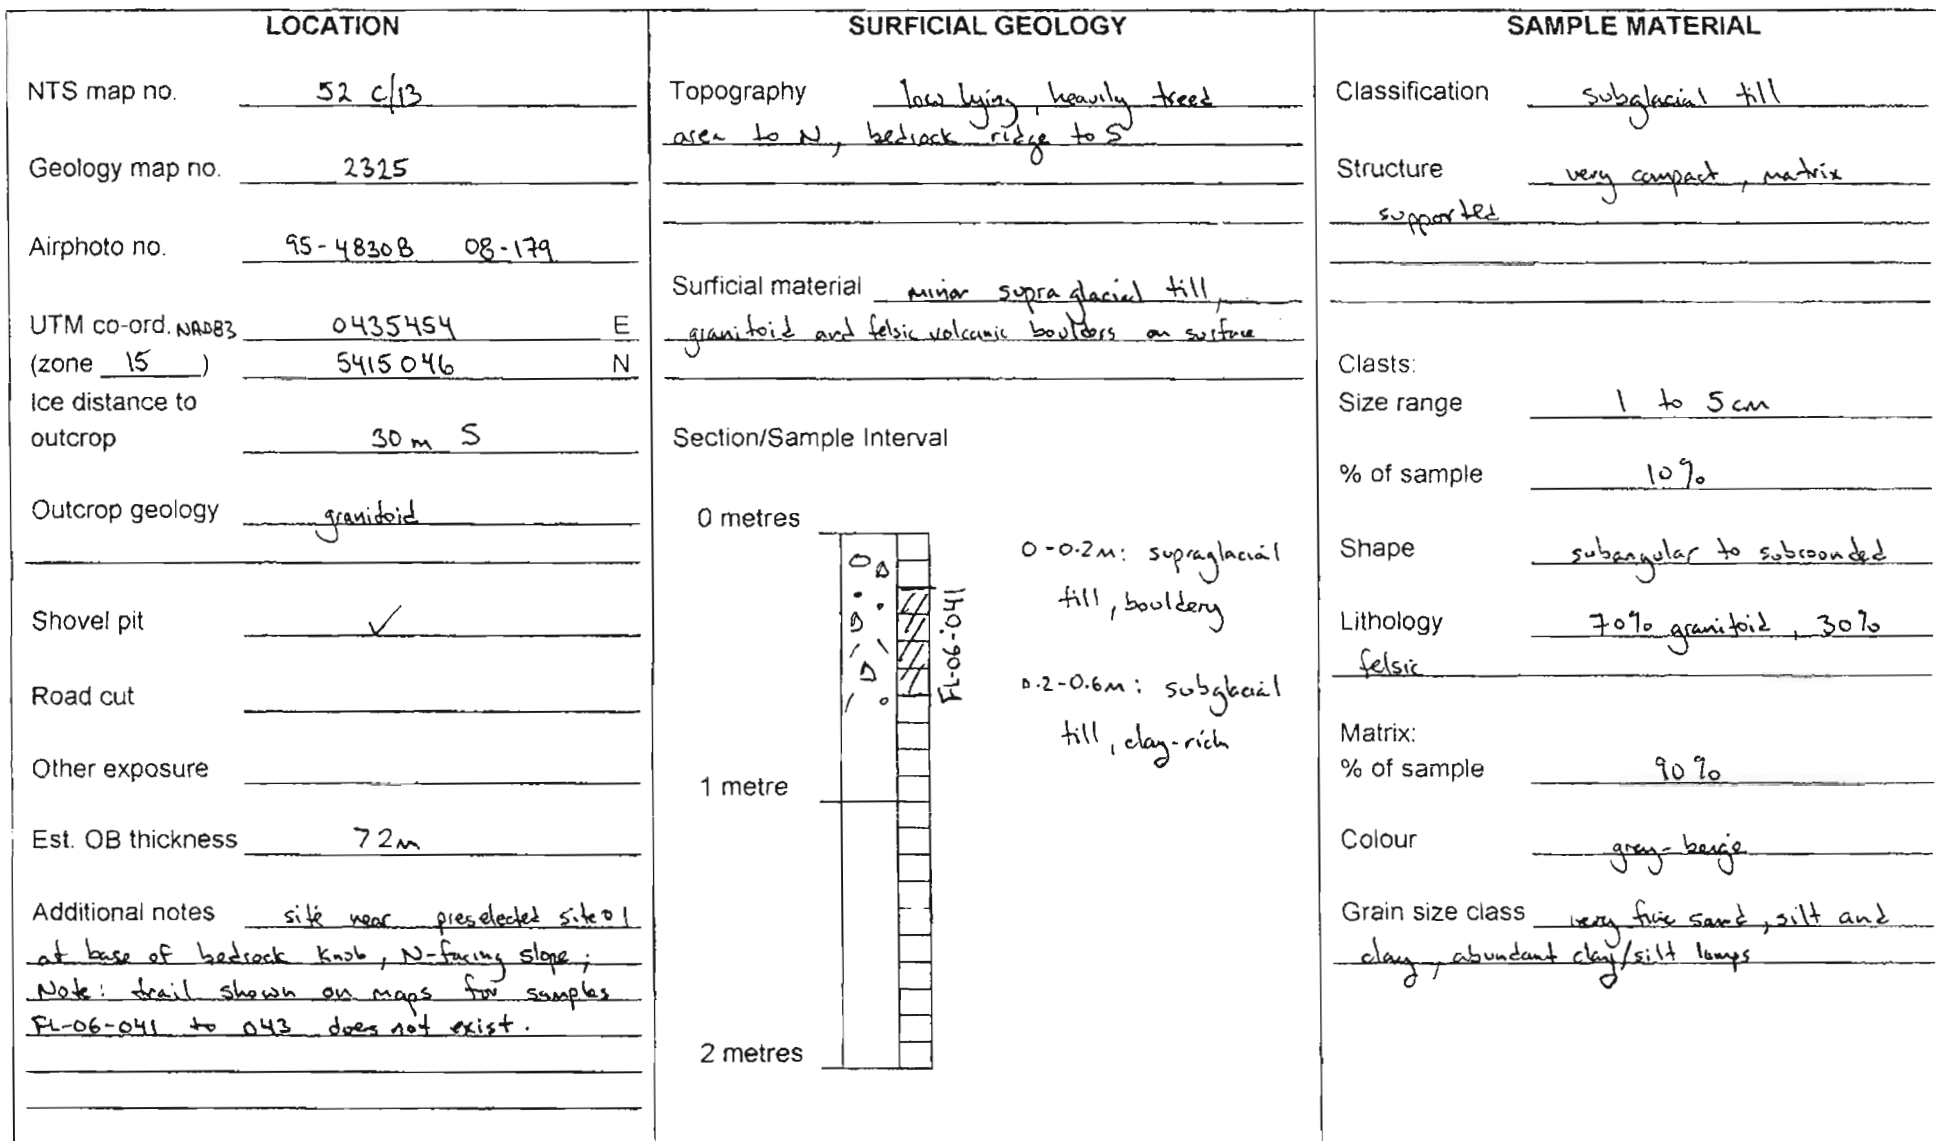 LOCATION
NTS map no. 52 C/13
Geology map no. 2325
Airphoto no. 95-4830B 08-179
UTM co-ord. NAD83 0435454 E
(zone 15) 5415046 N
Ice distance to
outcrop 30 m S
Outcrop geology granitoid
Shovel pit ✓
Road cut
Other exposure
Est. OB thickness 72m
Additional notes site near preselected site 01
at base of bedrock knob, N-facing slope;
Note: trail shown on maps for samples
FL-06-041 to 043 does not exist.
SURFICIAL GEOLOGY
Topography low lying, heavily treed
area to N, bedrock ridge to S
Surficial material minor supraglacial till,
granitoid and felsic volcanic boulders on surface
Section/Sample Interval
0 metres
0-0.2m: supraglacial
till, bouldery
FL-06-041
0.2-0.6m: subglacial
till, clay-rich
1 metre
2 metres
SAMPLE MATERIAL
Classification subglacial till
Structure very compact, matrix
supported
Clasts:
Size range 1 to 5 cm
% of sample 10%
Shape subangular to subrounded
Lithology 70% granitoid, 30%
felsic
Matrix:
% of sample 90%
Colour grey-beige
Grain size class very fine sand, silt and
clay, abundant clay/silt lumps